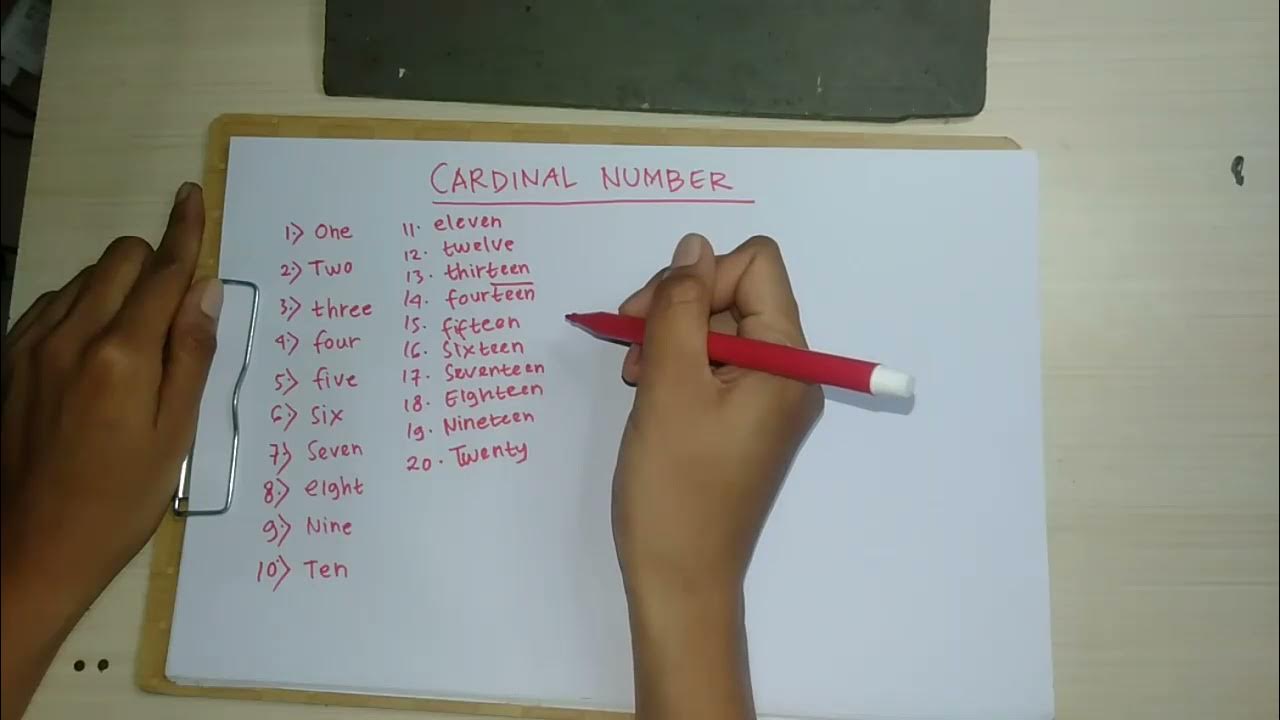 CARDINAL NUMBER
1.) One
2.) Two
3.) three
4.) four
5.) five
6.) Six
7.) Seven
8.) eight
9.) Nine
10.) Ten
11. eleven
12. twelve
13. thirteen
14. fourteen
15. fifteen
16. Sixteen
17. Seventeen
18. Eighteen
19. Nineteen
20. Twenty